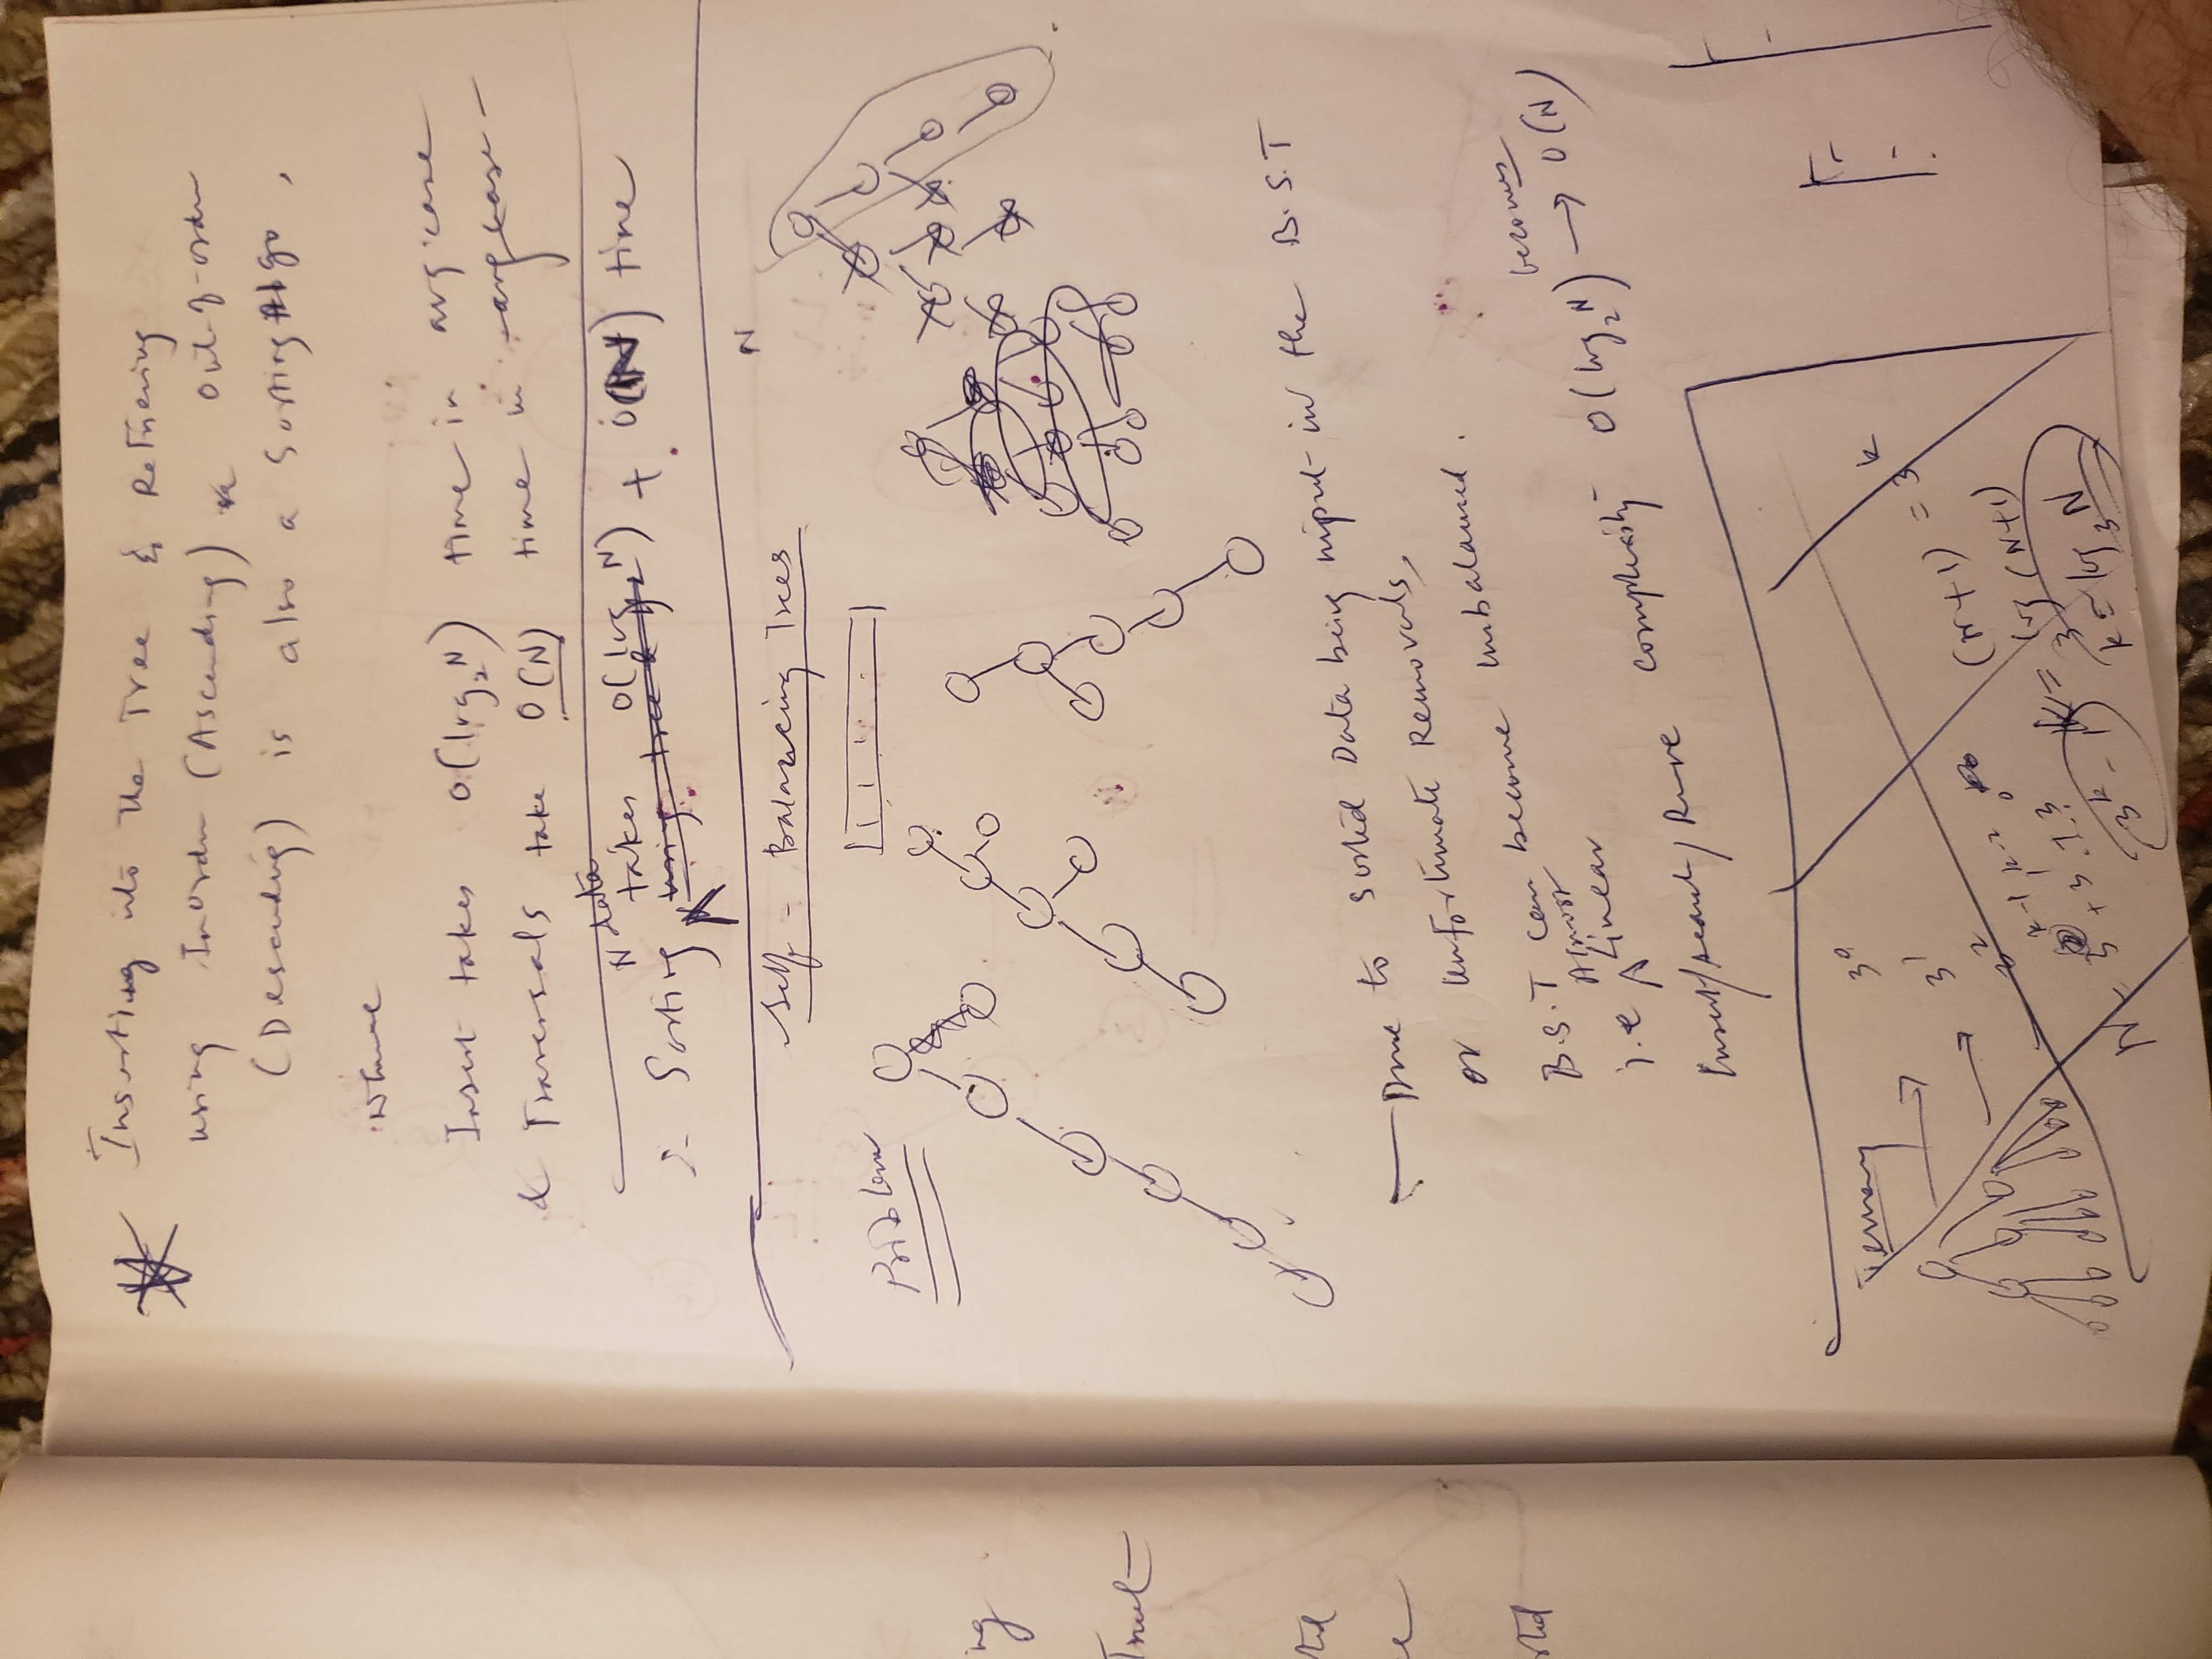 Inserting into The Tree & Retrieving
using InOrder (Ascending) & Out-of-order
(Descending) is also a Sorting Algo,
where
Insert takes O(log₂N) time in avg case
& Traversals take O(N) time in avg case
N data
∴ Sorting takes O(log₂N) + O(N) time
using tree
N
Self-Balancing Trees
Problem
Due to Sorted Data being input in the B.S.T
or Unfortunate Removals,
B.S.T can become unbalanced.
i.e Almost Linear
becomes
Insert/search/Rmve complexity O(log₂N) → O(N)
Ternary
3⁰
3¹
3²
(N+1) = 3ᵏ
N = 3ᵏ⁻¹ + 3ᵏ⁻² . . . 3⁰
3ᵏ - 1
k = log₃(N+1)
k = log₃N
ing